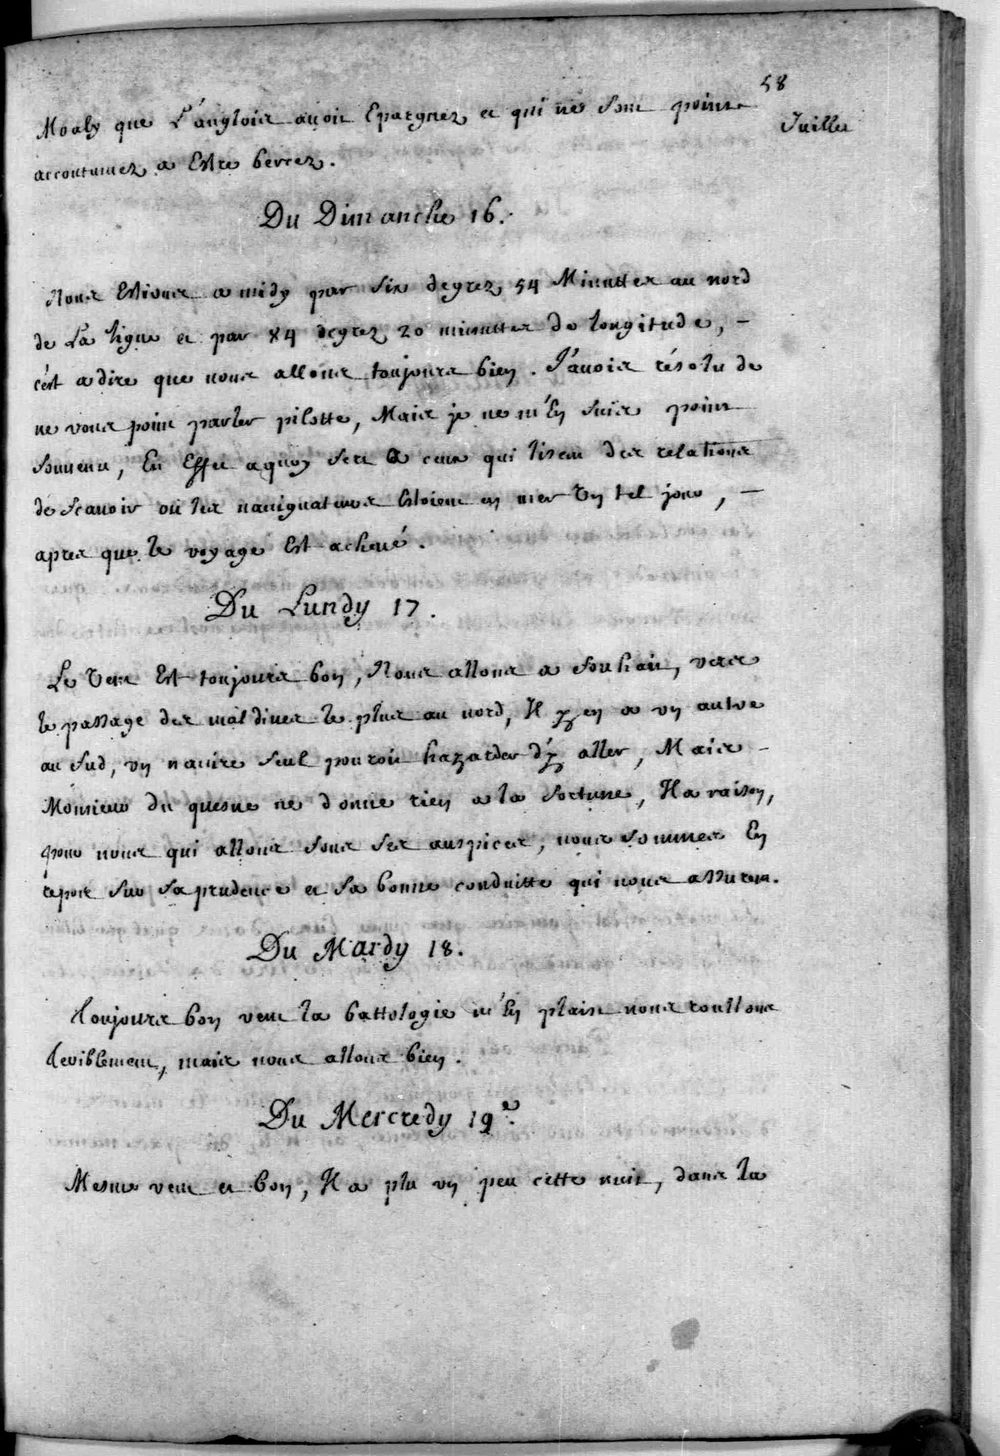 58
Juillet
Moaly que L'anglois avoit Epargnez et qui ne sont point
accoutumez a Estre bercez.
Du Dimanche 16.
Nous Estions a midy par six degrez 54 Minuttes au nord
de La ligne et par 84 degrez 20 minuttes de longitude, -
c'est a dire que nous allons toujours bien. J'avois résolu de
ne vous point parler pilotte, Mais je ne m'En suis point
souvenu, En Effet aquoy sert a ceux qui lisent des relations
de scavoir où les navigateurs Estoient en mer Un tel jour, -
apres que le voyage Est achevé.
Du Lundy 17.
Le Vent Est toujours bon, Nous allons a souhait, vers
le passage des maldives le plus au nord, Il y en a un autre
au sud, un navire seul pouroit hazarder d'y aller, Mais -
Monsieur du quesne ne donne rien a la fortune, Il a raison,
pour nous qui allons sous ses auspices, nous sommes En
repos sur sa prudence et sa bonne conduitte qui nous assurent.
Du Mardy 18.
Toujours bon vent la battologie m'En plaist nous roullons
terriblement, mais nous allons bien.
Du Mercredy 19e.
Mesme vent et bon, Il a plu un peu cette nuit, dans la